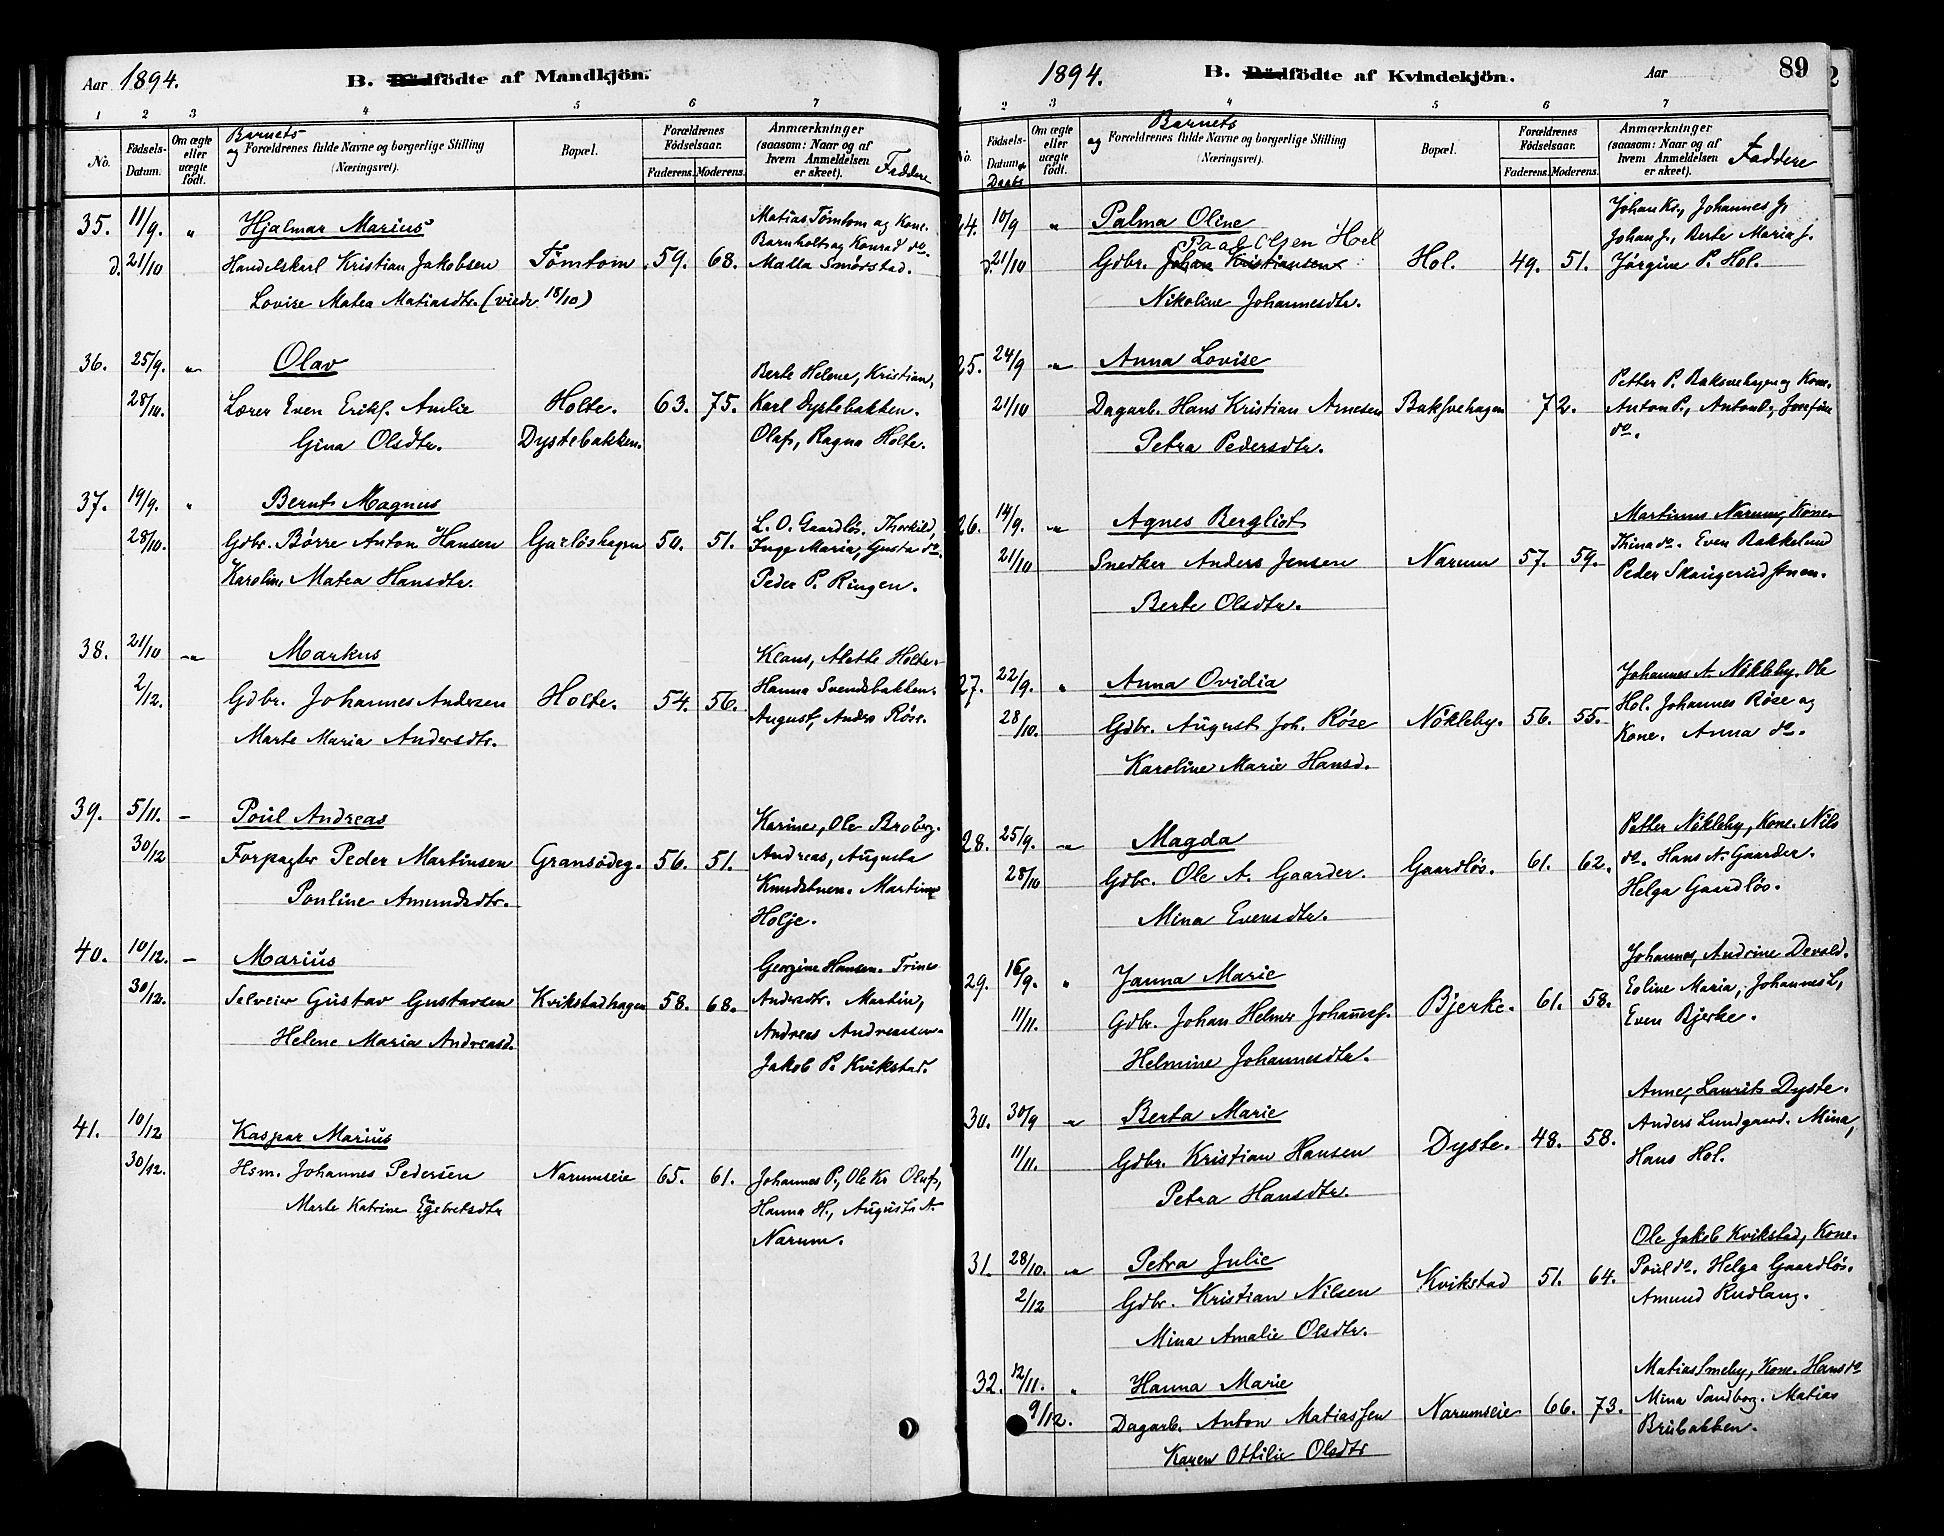 Aar 1894.
B. Dödfödte af Mandkjön.
1 2 3 4 5 6 7
No.
Födsels-
Datum.
Om ægte
eller
uægte
födt.
Barnets
og Forældrenes fulde Navne og borgerlige Stilling
(Næringsvei).
Bopæl.
Forældrenes
Födselsaar.
Faderens. Moderens.
Anmærkninger
(saasom: Naar og af
hvem Anmeldelsen
er skeet).
Faddere
35. 11/9. " Hjalmar Marius
Matias Tømtom og Kone.
Barnholt og Konrad do.
d. 21/10 Handelskarl Kristian Jakobsen Tømtom 59. 68. Malla Smörstad.
Lovise Matea Matiasdtr. (viede 18/10)
36. 25/9. " Olav
Berte Helene, Kristian,
28/10. Lærer Even Erikf. Amlie Holte. 63. 75. Karl Dystebakken.
Gina Olsdtr. Dystebakken. Olaf, Ragna Holte.
37. 19/9. " Bernt Magnus
L. O. Gaardlös. Thorkild,
28/10. Gdbr. Börre Anton Hansen Garlöshagen 50. 51. Inge Maria, Gusta do.
Karoline Matea Hansdtr. Peder P. Ringen.
38. 21/10 " Markus
Klaus, Alette Holte.
2/12. Gdbr. Johannes Andersen Holte. 54. 56. Hanna Svendsbakken.
August, Anders Röse.
Marte Maria Andersdtr.
39. 5/11. - Poul Andreas
Karine, Ole Broberg.
30/12 Forpagter Peder Martinsen Gransödeg. 56. 51. Andreas, Augusta
Pouline Amundsdtr. Knudstuen. Martinus
Holje.
40. 10/12. - Marius
Georgine Hansen. Trine
30/12. Selveier Gustav Gustavsen Kvikstadhagen 58. 68. Andersdtr. Martin,
Helene Maria Andreasd. Andreas Andreassen.
Jakob P. Kvikstad.
41. 10/12 Kaspar Marius
30/12. Hsm. Johannes Pedersen Narumseie 65. 61. Johannes P., Ole Kr. Oluf,
Marte Katrine Egebretsdtr Hanna H., Augusta A.
Narum.
1894.
B. Dödfödte af Kvindekjön.
Aar
89
1 2 3 4 5 6 7
No.
Födsels-
Datum &
Daabs
Om ægte
eller
uægte
födt.
Barnets
og Forældrenes fulde Navne og borgerlige Stilling
(Næringsvei).
Bopæl.
Forældrenes
Födselsaar.
Faderens. Moderens.
Anmærkninger
(saasom: Naar og af
hvem Anmeldelsen
er skeet).
Faddere
24. 10/9 " Palma Oline
Johan Kr., Johannes J.
Paal Olsen Hoel
Johan J., Berte Maria J.
d. 21/10 Gdbr. Johan Kristiansen Hol. 49. 51. Jörgine P. Hol.
Nikoline Johannesdtr.
25. 24/9 " Anna Lovise
Petter P. Baksvehagen og Kone.
21/10 Dagarb. Hans Kristian Arnesen Baksvehagen 72. Anton P., Josefine
Petra Pedersdtr. do.
26. 14/9. " Agnes Bergliot
Martinus Narum, Kone
Thina do. Even Bakkelund
21/10 Snedker Anders Jensen Narum 57. 59. Peder Skaugerudstuen.
Berte Olsdtr.
27. 22/9. " Anna Ovidia
Johannes A. Nökleby. Ole
Hol. Johannes Röse og
28/10. Gdbr. August Joh. Röse Nökleby. 56. 55. Kone. Anna do.
Karoline Marie Hansd.
28. 25/9. " Magda
Petter Nökleby, Kone. Nils
do. Hans A. Gaarder.
28/10 Gdbr. Ole A. Gaarder. Gaardlös. 61. 62. Helga Gaardlös.
Mina Evensdtr.
29. 16/9. " Janna Marie
Johannes, Andrine Devold.
Eoline Maria, Johannes L,
11/11. Gdbr. Johan Helmer Johannesf. Bjerke. 61. 58. Even Bjerke.
Helmine Johannesdtr.
30. 30/9 " Berta Marie
Anne, Laurits Dyste.
Anders Lundgaard. Mina,
11/11. Gdbr. Kristian Hansen Dyste. 48. 58. Hans Hol.
Petra Hansdtr.
31. 28/10. " Petra Julie
Ole Jakob Kvikstad, Kone.
Poul do. Helga Gaardlös.
2/12 Gdbr. Kristian Nilsen Kvikstad 51. 64. Amund Rudlang.
Mina Amalie Olsdtr.
32. 12/11. " Hanna Marie
Matias Smeby, Kone. Hans do
Mina Sandberg. Matias
9/12. Dagarb. Anton Matiassen Narumseie 66. 73. Brubakken.
Karen Ottilie Olsdtr